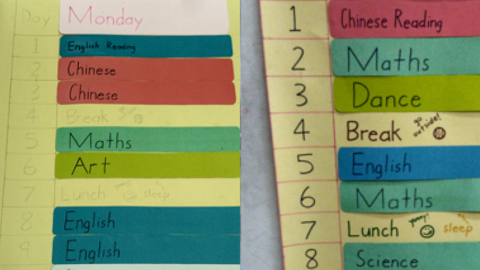 Day Monday
1 English Reading
2 Chinese
3 Chinese
4 Break
5 Maths
6 Art
7 Lunch sleep
8 English
9 English
1 Chinese Reading
2 Maths
3 Dance
4 Break go outside!
5 English
6 Maths
7 Lunch yummy! sleep
8 Science